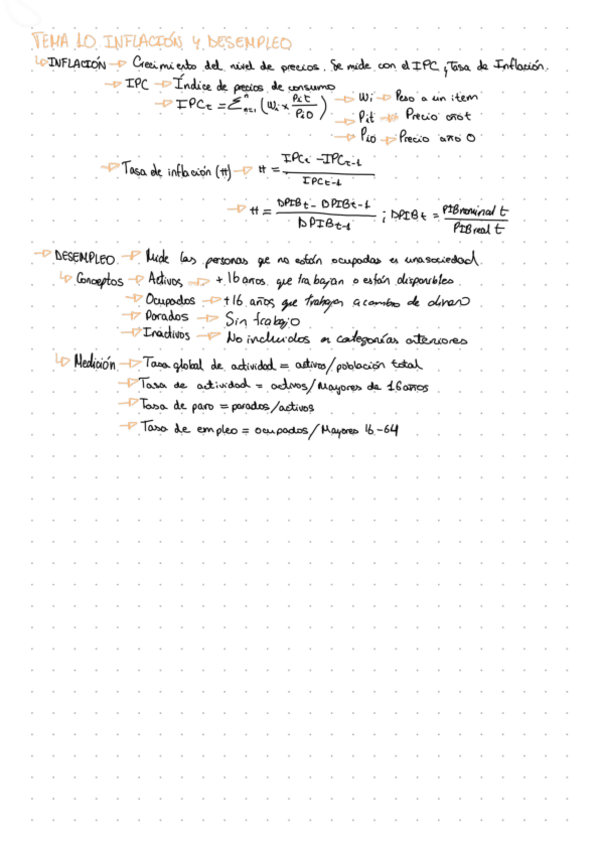 TEMA 10 INFLACIÓN Y DESEMPLEO
↳ INFLACIÓN → Crecimiento del nivel de precios. Se mide con el IPC y Tasa de Inflación.
→ IPC → Índice de precios de consumo
→ IPCt = Σⁿn=1 (Wi × Pit/Pi0) → Wi → Peso a un item
→ Pit → Precio año t
→ Pi0 → Precio año 0
→ Tasa de inflación (π) → π = (IPCt - IPCt-1)/IPCt-1
→ π = (DPIBt - DPIBt-1)/DPIBt-1 ; DPIBt = PIBnominal t/PIBreal t
→ DESEMPLEO → Mide las personas qe no están ocupadas en una sociedad.
↳ Conceptos → Activos → +16 años que trabajan o están disponibles.
→ Ocupados → +16 años que trabajan a cambio de dinero
→ Parados → Sin trabajo
→ Inactivos → No incluidos en categorías anteriores
↳ Medición → Tasa global de actividad = activos/población total
→ Tasa de actividad = activos/Mayores de 16 años
→ Tasa de paro = parados/activos
→ Tasa de empleo = ocupados/Mayores 16-64